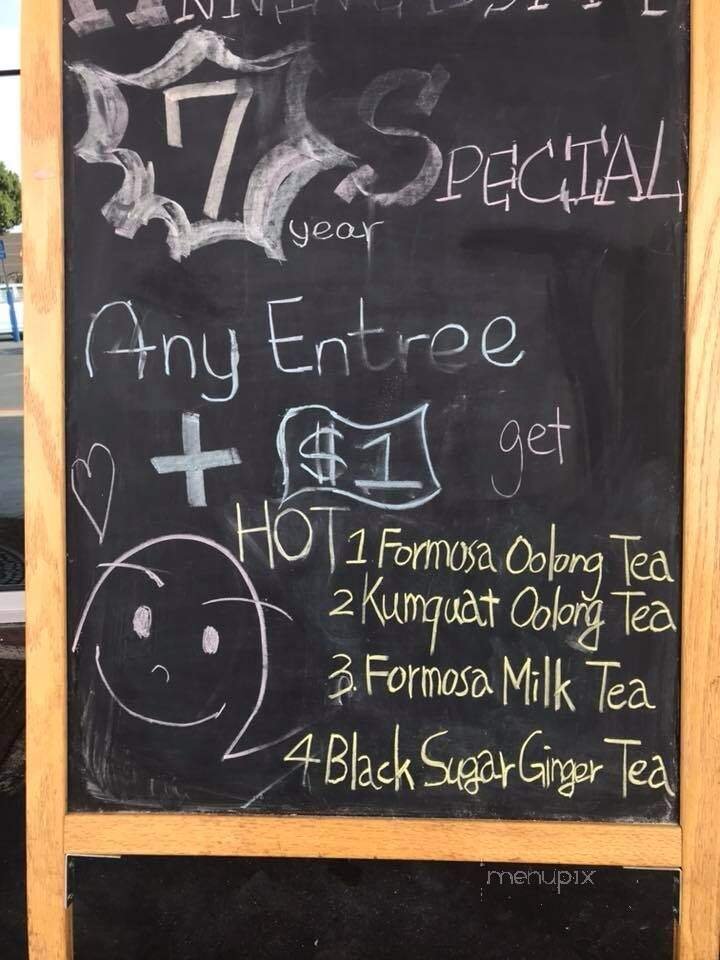 7 SPECIAL
year
Any Entree
+ $1 get
HOT 1 Formosa Oolong Tea
2 Kumquat Oolong Tea
3. Formosa Milk Tea
4 Black Sugar Ginger Tea
menupix